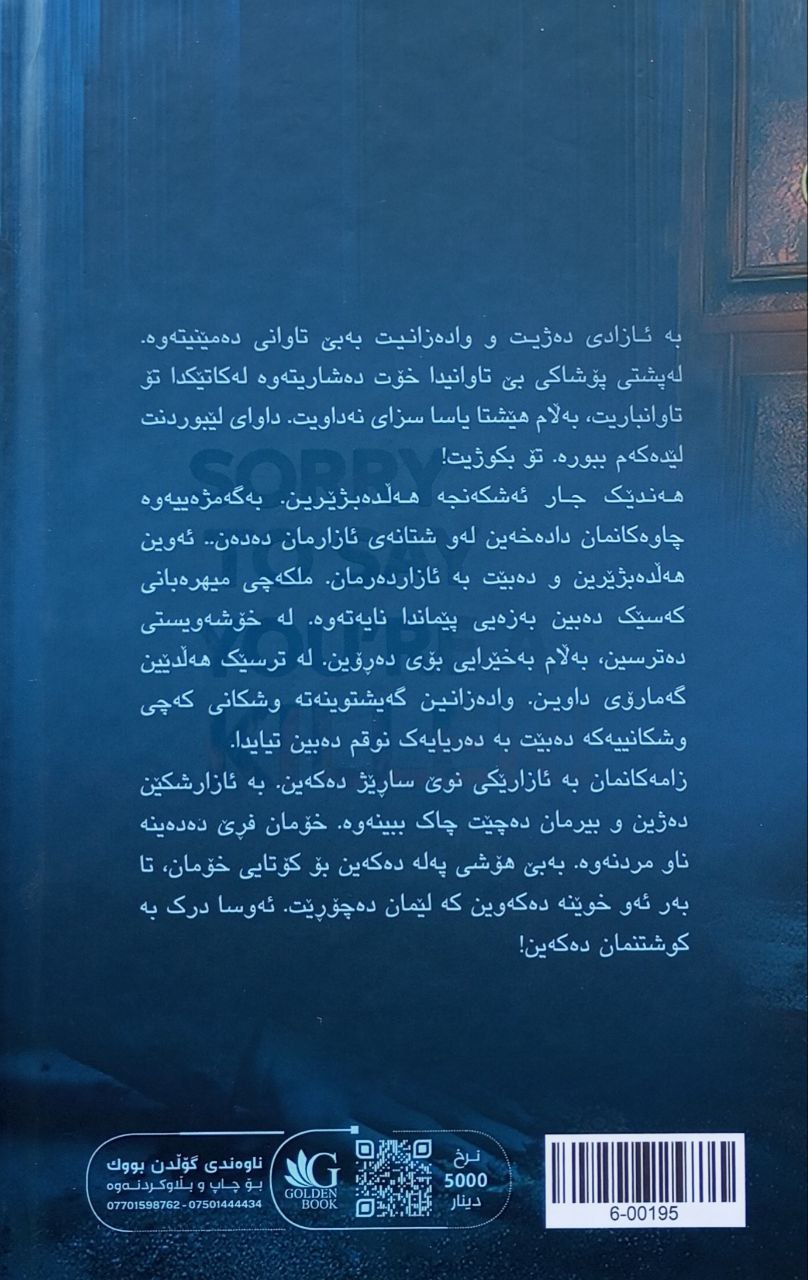 بە ئازادی دەژیت و وادەزانیت بەبێ تاوانی دەمێنیتەوە.
لەپشتی پۆشاکی بێ تاوانیدا خۆت دەشاریتەوە لەکاتێکدا تۆ
تاوانباریت، بەڵام هێشتا یاسا سزای نەداویت. داوای لێبوردنت
لێدەکەم ببورە. تۆ بکوژیت!
هەندێک جار ئەشکەنجە هەڵدەبژێرین. بەگەمژەییەوە
چاوەکانمان دادەخەین لەو شتانەی ئازارمان دەدەن.. ئەوین
هەڵدەبژێرین و دەبێت بە ئازاردەرمان. ملکەچی میهرەبانی
کەسێک دەبین بەزەیی پێماندا نایەتەوە. لە خۆشەویستی
دەترسین، بەڵام بەخێرایی بۆی دەڕۆین. لە ترسێک هەڵدێین
گەمارۆی داوین. وادەزانین گەیشتوینەتە وشکانی کەچی
وشکانییەکە دەبێت بە دەریایەک نوقم دەبین تیایدا.
زامەکانمان بە ئازارێکی نوێ ساڕێژ دەکەین. بە ئازارشکێن
دەژین و بیرمان دەچێت چاک ببینەوە. خۆمان فڕێ دەدەینە
ناو مردنەوە. بەبێ هۆشی پەلە دەکەین بۆ کۆتایی خۆمان، تا
بەر ئەو خوێنە دەکەوین کە لێمان دەچۆڕێت. ئەوسا درک بە
کوشتنمان دەکەین!
SORRY
TO SAY
YOU'RE
ناوەندی گۆڵدن بووك
بۆ چاپ و بڵاوکردنەوە
07701598762 - 07501444434
G
GOLDEN
BOOK
نرخ
5000
دینار
6-00195